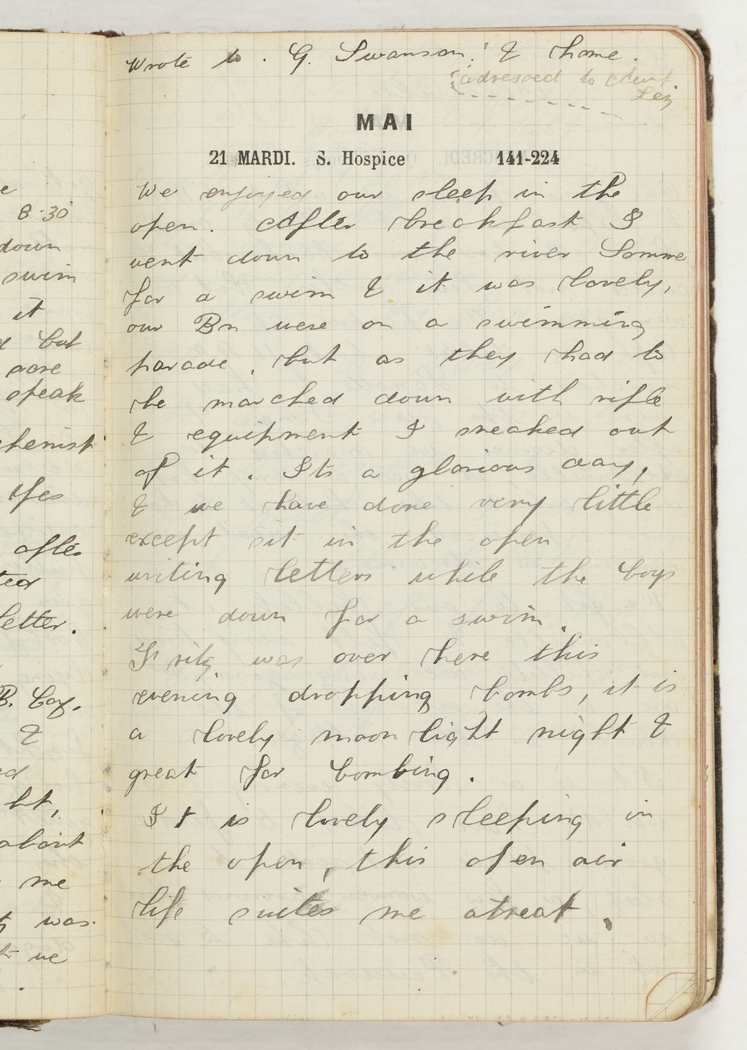 e
8.30
down
swim
it
d but
were
speak
chemist
Yes
after
tea
letter.
B. Coy.
&
ed
ht,
about
me
was
we
Wrote to . G. Swanson. & home.
(adressed to
MAI
21 MARDI. S. Hospice 141-224
We enjoyed our sleep in the
open. After breakfast I
went down to the river Somme
for a swim & it was lovely,
our Bn were on a swimming
parade, but as they had to
be marched down with rifle
& equipment I sneaked out
of it. Its a glorious day,
& we have done very little
except sit in the open
writing letters while the boys
were down for a swim.
Fritz was over here this
evening dropping bombs, it is
a lovely moon light night &
great for bombing.
It is lovely sleeping in
the open, this open air
life suites me atreat.